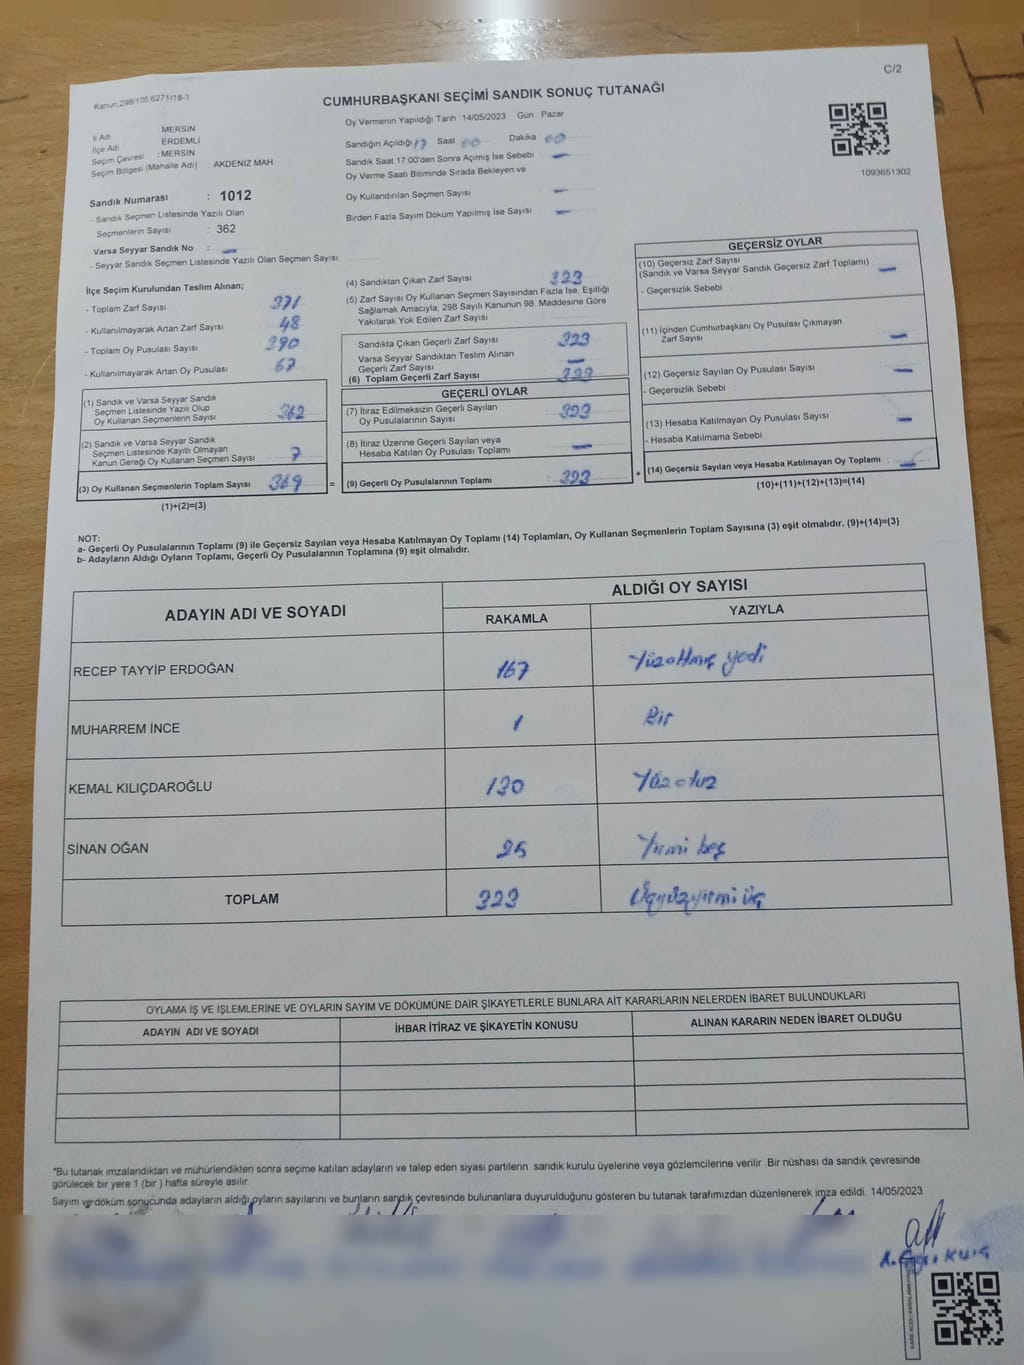 C/2
Kanun:298/105.6271/18-1
CUMHURBAŞKANI SEÇİMİ SANDIK SONUÇ TUTANAĞI
İl Adı MERSİN
İlçe Adı ERDEMLİ
Seçim Çevresi : MERSİN
Seçim Bölgesi (Mahalle Adı) AKDENİZ MAH.
Sandık Numarası : 1012
- Sandık Seçmen Listesinde Yazılı Olan
Seçmenlerin Sayısı : 362
Varsa Seyyar Sandık No : —
- Seyyar Sandık Seçmen Listesinde Yazılı Olan Seçmen Sayısı:
Oy Vermenin Yapıldığı Tarih 14/05/2023 Gün Pazar
Sandığın Açıldığı 17 Saat 00 Dakika 00
Sandık Saat 17 00'den Sonra Açımış İse Sebebi —
Oy Verme Saati Bitiminde Sırada Bekleyen ve
Oy Kullandırılan Seçmen Sayısı —
Birden Fazla Sayım Döküm Yapılmış İse Sayısı —
1093651302
İlçe Seçim Kurulundan Teslim Alınan;
- Toplam Zarf Sayısı 371
- Kullanılmayarak Artan Zarf Sayısı 48
- Toplam Oy Pusulası Sayısı 390
- Kullanılmayarak Artan Oy Pusulası 67
(1) Sandık ve Varsa Seyyar Sandık
Seçmen Listesinde Yazılı Olup
Oy Kullanan Seçmenlerin Sayısı 362
(2) Sandık ve Varsa Seyyar Sandık
Seçmen Listesinde Kayıtlı Olmayan
Kanun Gereği Oy Kullanan Seçmen Sayısı 7
(3) Oy Kullanan Seçmenlerin Toplam Sayısı 369 =
(1)+(2)=(3)
(4) Sandıktan Çıkan Zarf Sayısı 323
(5) Zarf Sayısı Oy Kullanan Seçmen Sayısından Fazla İse, Eşitliği
Sağlamak Amacıyla, 298 Sayılı Kanunun 98. Maddesine Göre
Yakılarak Yok Edilen Zarf Sayısı
Sandıkta Çıkan Geçerli Zarf Sayısı 323
Varsa Seyyar Sandıktan Teslim Alınan
Geçerli Zarf Sayısı —
(6) Toplam Geçerli Zarf Sayısı 323
GEÇERLİ OYLAR
(7) İtiraz Edilmeksizin Geçerli Sayılan
Oy Pusulasının Sayısı 323
(8) İtiraz Üzerine Geçerli Sayılan veya
Hesaba Katılan Oy Pusulası Toplamı —
(9) Geçerli Oy Pusulalarının Toplamı : 323 +
GEÇERSİZ OYLAR
(10) Geçersiz Zarf Sayısı
(Sandık ve Varsa Seyyar Sandık Geçersiz Zarf Toplamı) —
- Geçersizlik Sebebi :
(11) İçinden Cumhurbaşkanı Oy Pusulası Çıkmayan
Zarf Sayısı —
(12) Geçersiz Sayılan Oy Pusulası Sayısı —
- Geçersizlik Sebebi :
(13) Hesaba Katılmayan Oy Pusulası Sayısı —
- Hesaba Katılmama Sebebi
(14) Geçersiz Sayılan veya Hesaba Katılmayan Oy Toplamı : —
(10)+(11)+(12)+(13)=(14)
NOT:
a- Geçerli Oy Pusulalarının Toplamı (9) ile Geçersiz Sayılan veya Hesaba Katılmayan Oy Toplamı (14) Toplamları, Oy Kullanan Seçmenlerin Toplam Sayısına (3) eşit olmalıdır. (9)+(14)=(3)
b- Adayların Aldığı Oyların Toplamı, Geçerli Oy Pusulalarının Toplamına (9) eşit olmalıdır.
ADAYIN ADI VE SOYADI ALDIĞI OY SAYISI
RAKAMLA YAZIYLA
RECEP TAYYİP ERDOĞAN 167 Yüzaltmış yedi
MUHARREM İNCE 1 Bir
KEMAL KILIÇDAROĞLU 130 Yüzotuz
SİNAN OĞAN 25 Yirmi beş
TOPLAM 323 Üçyüzyirmi üç
OYLAMA İŞ VE İŞLEMLERİNE VE OYLARIN SAYIM VE DÖKÜMÜNE DAİR ŞİKAYETLERLE BUNLARA AİT KARARLARIN NELERDEN İBARET BULUNDUKLARI
ADAYIN ADI VE SOYADI İHBAR İTİRAZ VE ŞİKAYETİN KONUSU ALINAN KARARIN NEDEN İBARET OLDUĞU
*Bu tutanak imzalandıktan ve mühürlendikten sonra seçime katılan adayların ve talep eden siyasi partilerin sandık kurulu üyelerine veya gözlemcilerine verilir. Bir nüshası da sandık çevresinde
görülecek bir yere 1 (bir) hafta süreyle asılır.
Sayım ve döküm sonucunda adayların aldığı oyların sayılarını ve bunların sandık çevresinde bulunanlara duyurulduğunu gösteren bu tutanak tarafımızdan düzenlenerek imza edildi. 14/05/2023